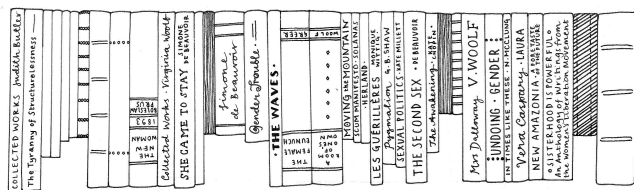 COLLECTED WORKS Judith Butler
The Tyranny of Structurelessness
1893
THE
NEW
WOMAN
Collected Works · Virginia Woolf
SHE CAME TO STAY SIMONE
DE BEAUVOIR
Simone
de Beauvoir
Gender Trouble
THE WAVES·
GREER
THE
FEMALE
EUNUCH
WOOLF
A
ROOM
OF
ONE'S
OWN
MOVING THE MOUNTAIN
SCUM MANIFESTO·SOLANAS
HERLAND
LES GUÉRILLÈRES MONIQUE
WITTIG
Pygmalion G.B.SHAW
SEXUAL POLITICS·KATE MILLETT
THE SECOND SEX ·DE BEAUVOIR
The Awakening·KATE
CHOPIN
Mrs Dalloway V. WOOLF
UNDOING·GENDER
IN TIMES LIKE THESE·N·MCCLUNG
Vera Caspary·LAURA
NEW AMAZONIA·A FORETASTE
OF THE FUTURE
SISTERHOOD IS POWERFUL
An Anthology of Writings from
the Women's Liberation Movement